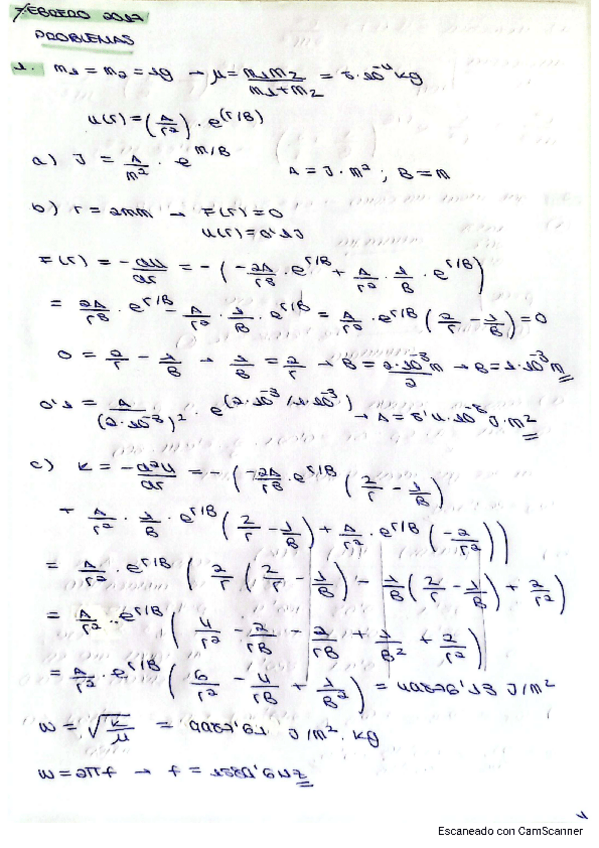 FEBRERO 2017
PROBLEMAS
1. m₁ = m₂ = 1g → μ = m₁m₂/(m₁+m₂) = 5·10⁻⁴ kg
u(r) = (A/r²) · e^(r/B)
a) J = A/m² · e^(m/B)    A = J·m² ; B = m
b) r = 2mm → F(r) = 0
u(r) = 0'1J
F(r) = -du/dr = -(-2A/r³ · e^(r/B) + A/r² · 1/B · e^(r/B))
= 2A/r³ · e^(r/B) - A/r² · 1/B · e^(r/B) = A/r² · e^(r/B) (2/r - 1/B) = 0
0 = 2/r - 1/B → 1/B = 2/r → B = 2·10⁻³/2 m → B = 1·10⁻³ m
0'1 = A/(2·10⁻³)² · e^(2·10⁻³/1·10⁻³) → A = 5'4·10⁻⁸ J·m²
c) K = -d²u/dr = -(-2A/r³ · e^(r/B) (2/r - 1/B)
+ A/r² · 1/B · e^(r/B) (2/r - 1/B) + A/r² · e^(r/B) (-2/r²))
= A/r² · e^(r/B) (2/r (2/r - 1/B) - 1/B (2/r - 1/B) + 2/r²)
= A/r² · e^(r/B) (4/r² - 2/rB - 2/rB + 1/B² + 2/r²)
= A/r² · e^(r/B) (6/r² - 4/rB + 1/B²) = J/m²
ω = √(K/μ) = J/m²·kg
ω = 2πf → f =
Escaneado con CamScanner